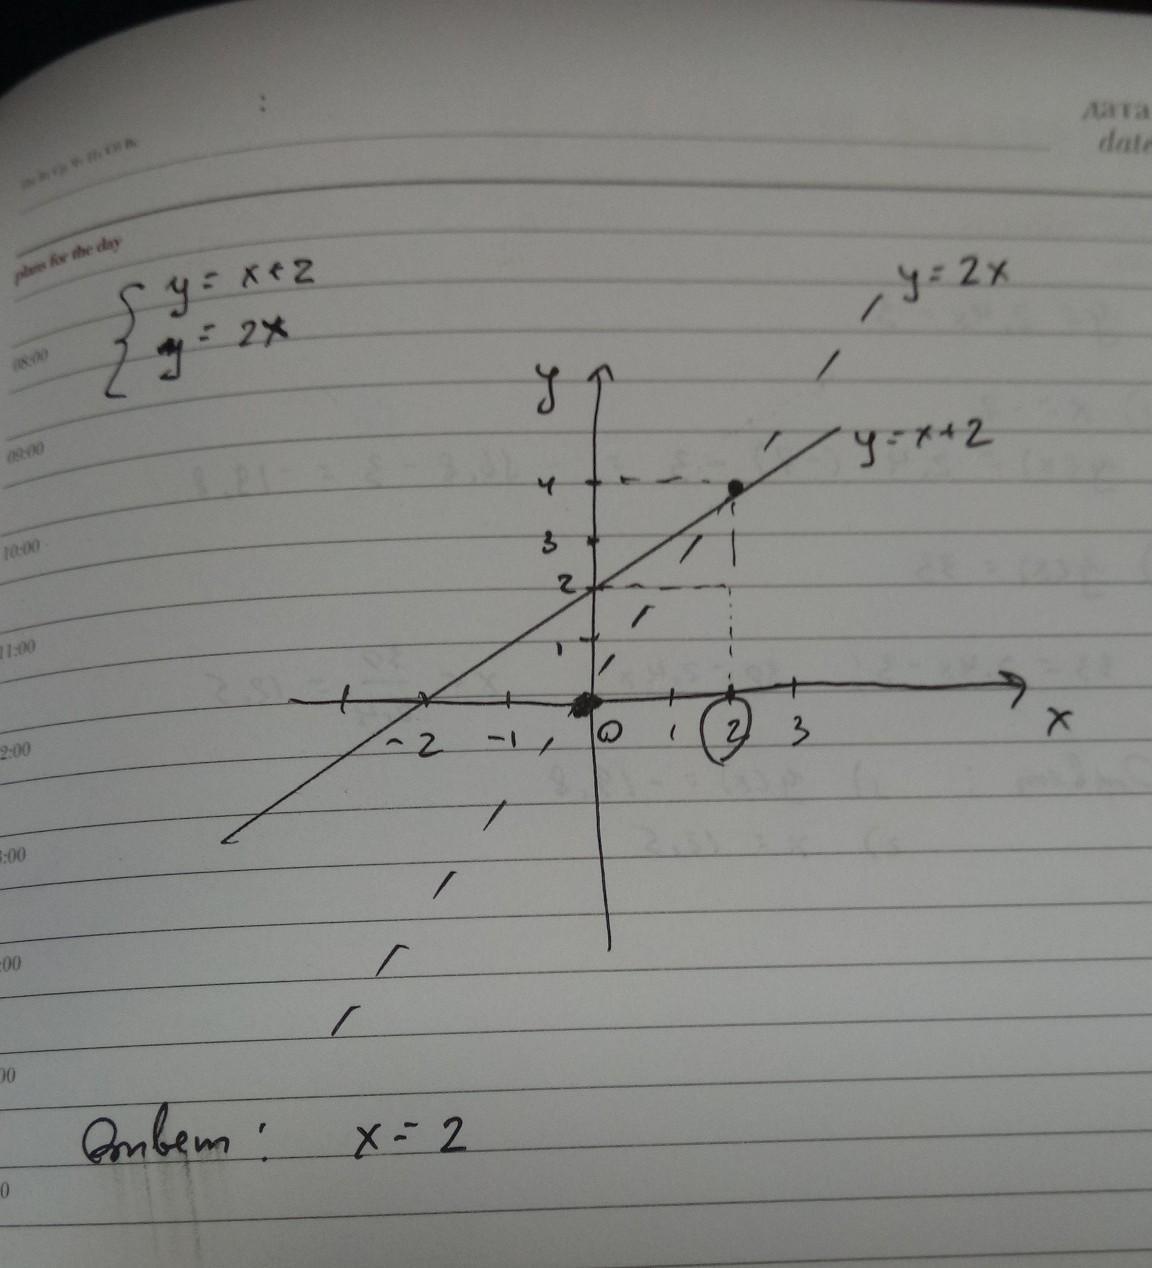 :
дата
date
plans for the day
{ y = x+2
y = 2x
y = 2x
08:00
y
y = x+2
09:00
4
10:00
3
2
11:00
1
-2 -1 0 1 2 3
x
2:00
:00
:00
00
Ответ: x = 2
0